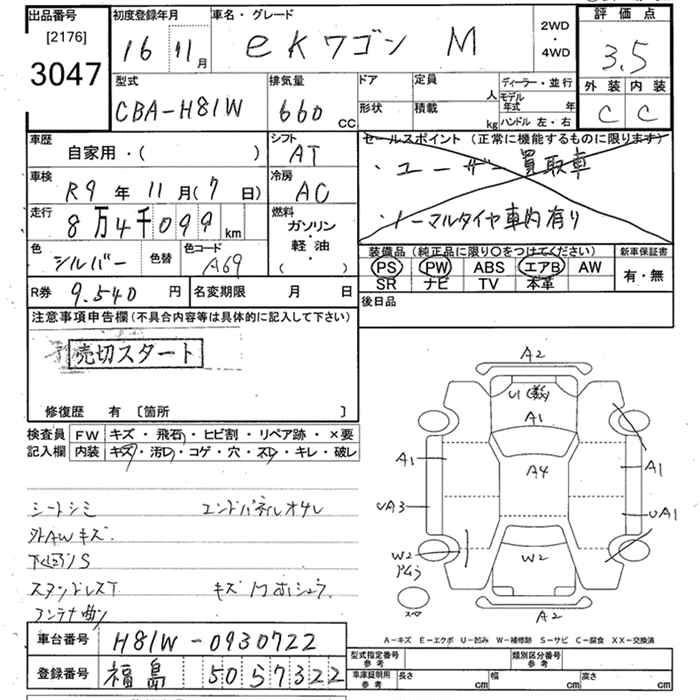 出品番号
[2176]
3047
初度登録年月
16 11月
車名・グレード
eKワゴン M
2WD
・
4WD
評価点
3.5
外装 内装
C C
型式
CBA-H81W
排気量
660 CC
ドア
形状
定員 人
積載 kg
ディーラー・並行
モデル年式 年
ハンドル 左・右
車歴
自家用・( )
シフト
AT
車検
R9年11月(7日)
冷房
AC
走行
8万4千099km
燃料
ガソリン
・
軽油
・
( )
色
シルバー
色替
色コード
A69
セールスポイント (正常に機能するものに限ります)
・ユーザー買取車
・ノーマルタイヤ車内有り
装備品 (純正品に限り○をつけてください)
PS PW ABS エアB AW
SR ナビ TV 本革
新車保証書
有・無
R券 9.540円
名変期限 月 日
後日品
注意事項申告欄 (不具合内容等は具体的に記入して下さい)
売切スタート
修復歴 有 [箇所 ]
検査員 FW キズ・飛石・ヒビ割・リペア跡・×要
記入欄 内装 キズ・汚レ・コゲ・穴・スレ・キレ・破レ
シートシミ エンドパネルオサレ
外AWキズ.
下廻りS
アンテナ曲ン
A2
U1
A1
A1
A4
A1
UA3
UA1
W2
W2
A2
スペア
A-キズ E-エクボ U-凹み W-補修跡 S-サビ C-腐食 XX-交換済
車台番号 H81W-0930722
登録番号 福島 50 5 7322
型式指定番号
参考
類別区分番号
参考
車庫証明用
参考
長さ cm 幅 cm 高さ cm